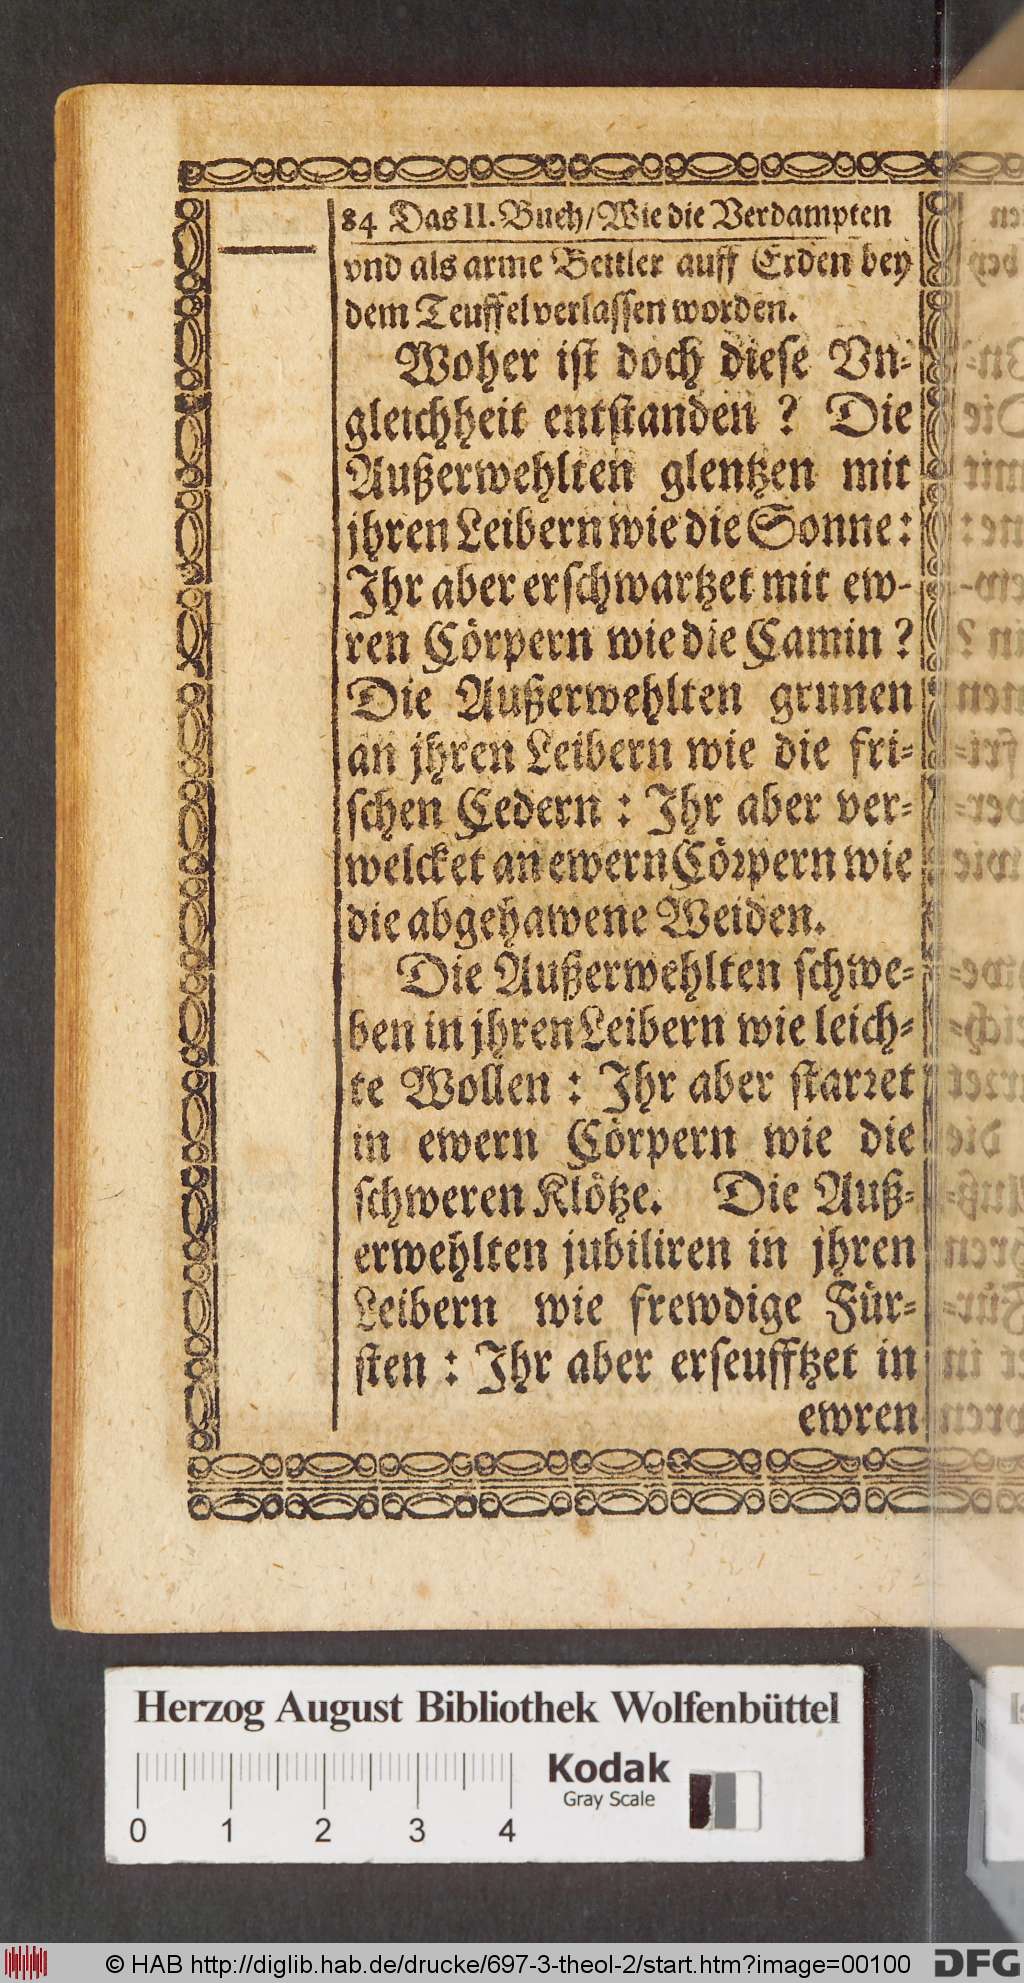 84 Das II. Buch/Wie die Verdampten
vnd als arme Bettler auff Erden bey
dem Teuffel verlassen worden.
Woher ist doch diese Vn-
gleichheit entstanden ? Die
Außerwehlten glentzen mit
jhren Leibern wie die Sonne:
Ihr aber erschwartzet mit ew-
ren Cörpern wie die Camin ?
Die Außerwehlten grunen
an jhren Leibern wie die fri-
schen Cedern : Ihr aber ver-
welcket an ewern Cörpern wie
die abgehawene Weiden.
Die Außerwehlten schwe-
ben in jhren Leibern wie leich-
te Wollen : Ihr aber starret
in ewern Cörpern wie die
schweren Klötze. Die Auß-
erwehlten jubiliren in jhren
Leibern wie frewdige Für-
sten : Ihr aber erseufftzet in
ewren
Herzog August Bibliothek Wolfenbüttel
Kodak
Gray Scale
0 1 2 3 4
© HAB http://diglib.hab.de/drucke/697-3-theol-2/start.htm?image=00100
DFG